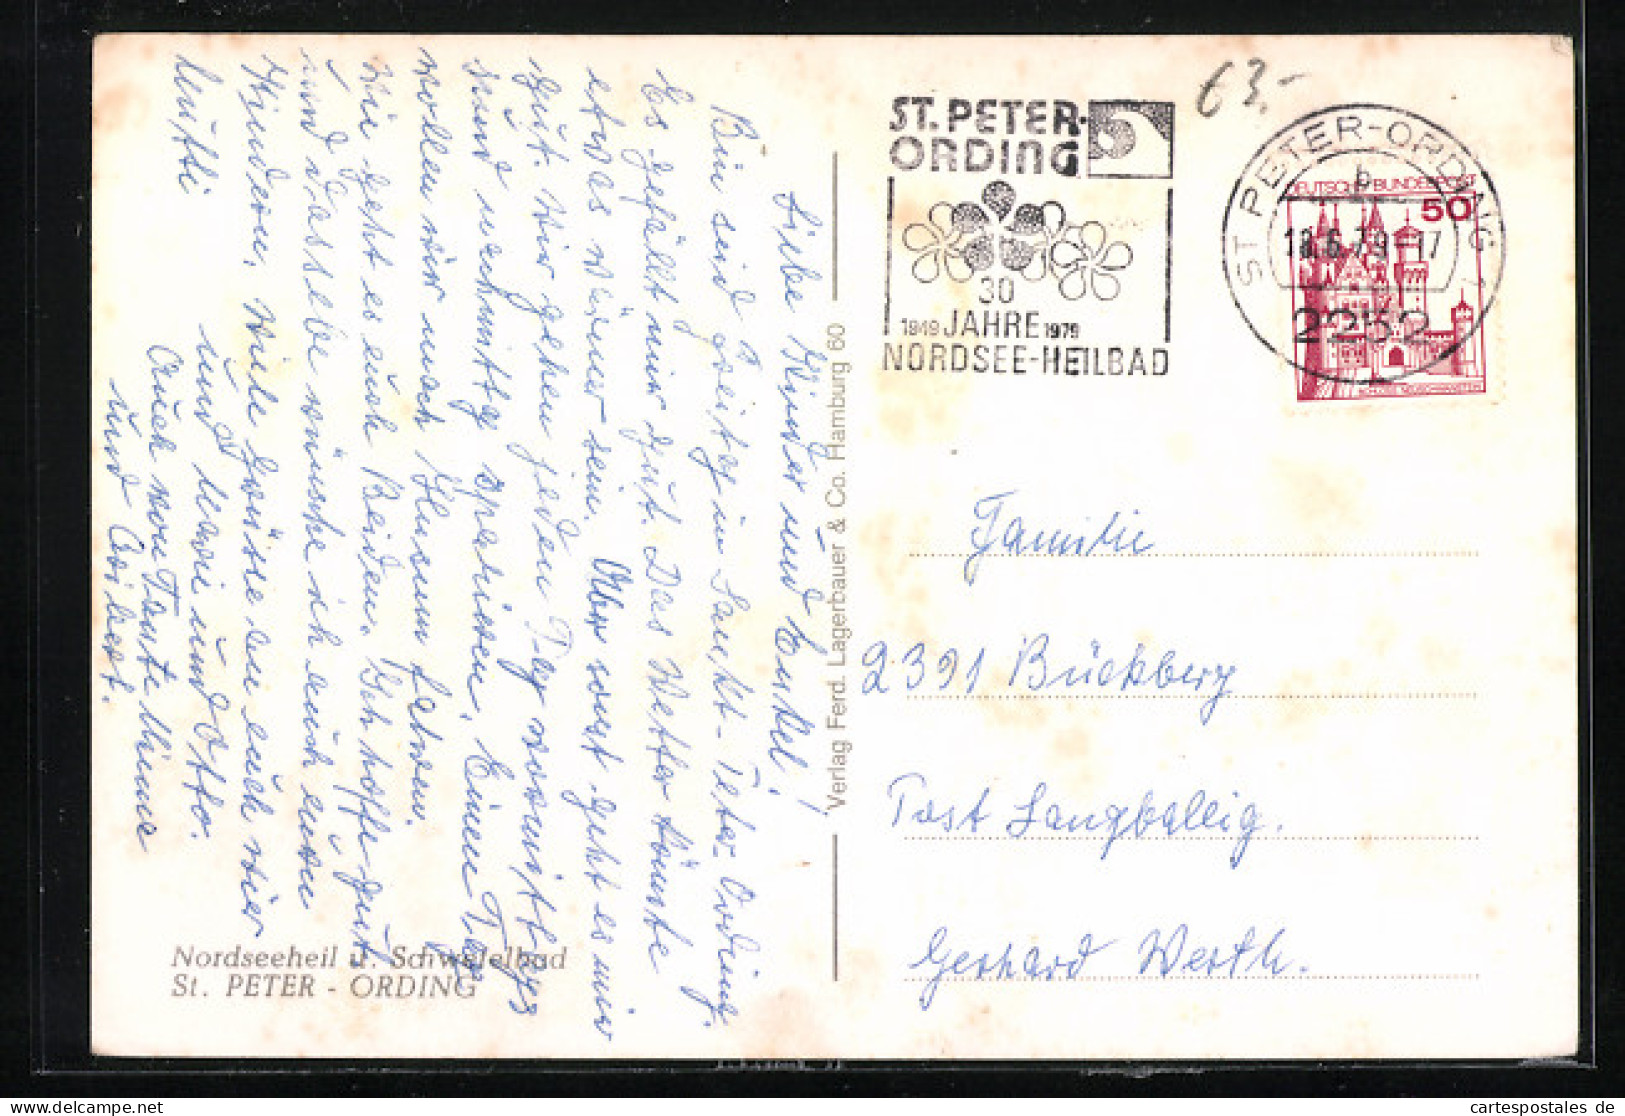 Liebe Kinder und Enkel!
Bin seid Freitag in Sankt-Peter-Ording.
Es gefällt mir gut. Das Wetter könnte
etwas wärmer sein. Aber sonst geht es mir
gut. Wir gehen jeden Tag vormittags
und nachmittag spazieren. Einen Tag
wollen wir nach Husum fahren.
Wie geht es euch Beiden. Ich hoffe gut
und dasselbe wünsche ich auch euren
Kindern. Viele Grüsse an euch vier
Mutti und und Otto.
Auch von Tante Minne
und
Nordseeheil u. Schwefelbad
St. PETER - ORDING
Verlag Ferd. Lagerbauer & Co. Hamburg 60
€3.-
ST. PETER-
ORDING
30
1949 JAHRE 1979
NORDSEE-HEILBAD
ST PETER-ORDING
b
18.6.79-17
2252
DEUTSCHE BUNDESPOST
50
Familie
2391 Bückberg
Post Langballig.
Gerhard Werth.
cartespostales de